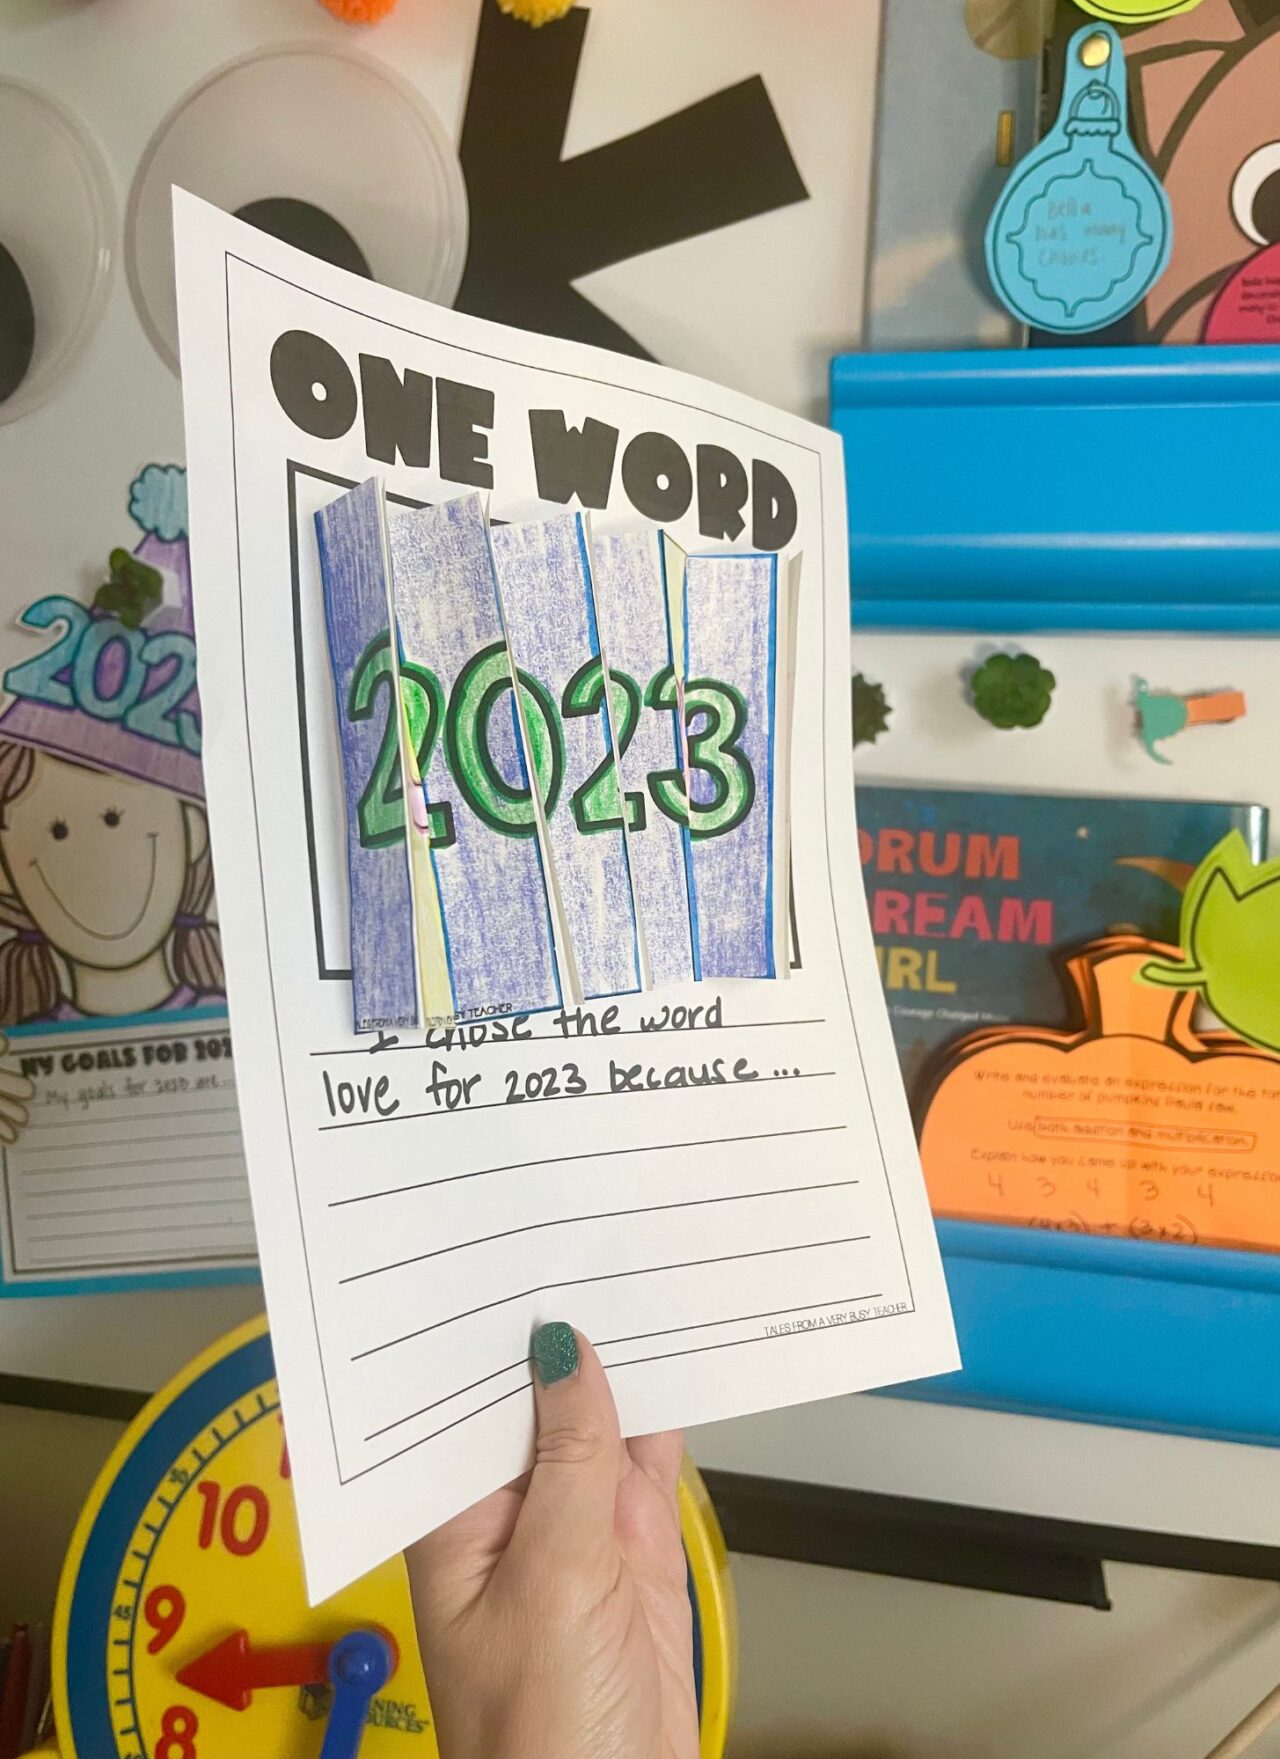 ONE WORD
2023
TALES FROM A VERY BUSY TEACHER
I chose the word
love for 2023 because...
TALES FROM A VERY BUSY TEACHER
Bella
has many
2023
MY GOALS FOR 202
My goals for 2023 are...
DRUM
DREAM
GIRL
Courage Changed Music
Write and evaluate an expression for the
number of pumpkins Paula saw.
Use both addition and multiplication.
Explain how you came up with your expression
4 3 4 3 4
(4x3) + (3x2)
10
9
45
8